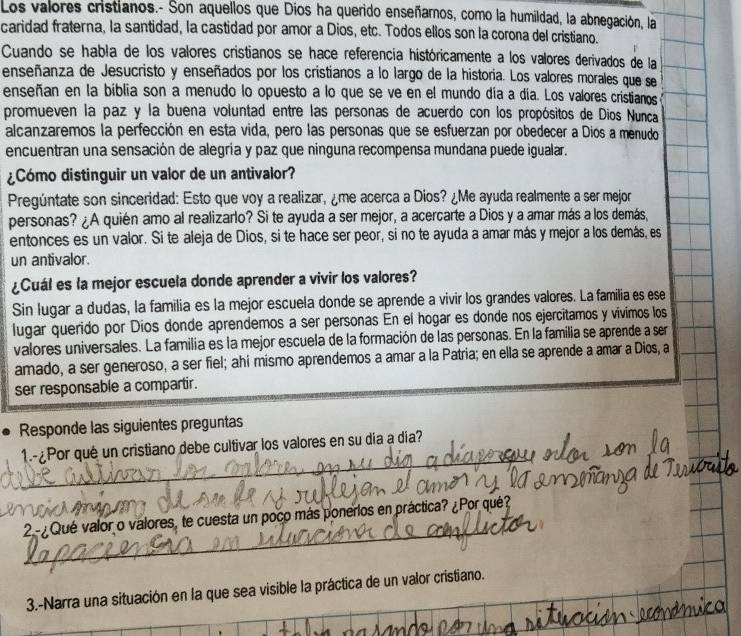 Los valores cristianos.- Son aquellos que Dios ha querido enseñarnos, como la humildad, la abnegación, la
caridad fraterna, la santidad, la castidad por amor a Dios, etc. Todos ellos son la corona del cristiano.
Cuando se habla de los valores cristianos se hace referencia históricamente a los valores derivados de la
enseñanza de Jesucristo y enseñados por los cristianos a lo largo de la historia. Los valores morales que se
enseñan en la biblia son a menudo lo opuesto a lo que se ve en el mundo día a día. Los valores cristianos
promueven la paz y la buena voluntad entre las personas de acuerdo con los propósitos de Dios Nunca
alcanzaremos la perfección en esta vida, pero las personas que se esfuerzan por obedecer a Dios a menudo
encuentran una sensación de alegría y paz que ninguna recompensa mundana puede igualar.
¿Cómo distinguir un valor de un antivalor?
Pregúntate son sinceridad: Esto que voy a realizar, ¿me acerca a Dios? ¿Me ayuda realmente a ser mejor
personas? ¿A quién amo al realizarlo? Si te ayuda a ser mejor, a acercarte a Dios y a amar más a los demás,
entonces es un valor. Si te aleja de Dios, si te hace ser peor, si no te ayuda a amar más y mejor a los demás, es
un antivalor.
¿Cuál es la mejor escuela donde aprender a vivir los valores?
Sin lugar a dudas, la familia es la mejor escuela donde se aprende a vivir los grandes valores. La familia es ese
lugar querido por Dios donde aprendemos a ser personas En el hogar es donde nos ejercitamos y vivimos los
valores universales. La familia es la mejor escuela de la formación de las personas. En la familia se aprende a ser
amado, a ser generoso, a ser fiel; ahí mismo aprendemos a amar a la Patria; en ella se aprende a amar a Dios, a
ser responsable a compartir.
• Responde las siguientes preguntas
1.-¿Por qué un cristiano debe cultivar los valores en su día a día?
debe cultivar los valores en su dia a día porque son la
de su fe y reflejan el amor y la enseñanza de Jesucristo
2.-¿Qué valor o valores, te cuesta un poco más ponerlos en práctica? ¿Por qué?
La paciencia en situaciones de conflictos
3.-Narra una situación en la que sea visible la práctica de un valor cristiano.
pasando por una situación económica